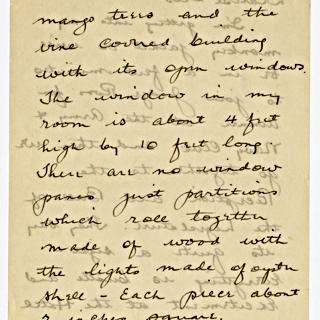 mango terrs and the
vine covered building
with its opin windows.
The window in my
room is about 4 feet
high by 10 feet long.
There are no window
panes just partitions
which roll together
made of wood with
the lights made of oyster
shell - Each piece about
inches square.